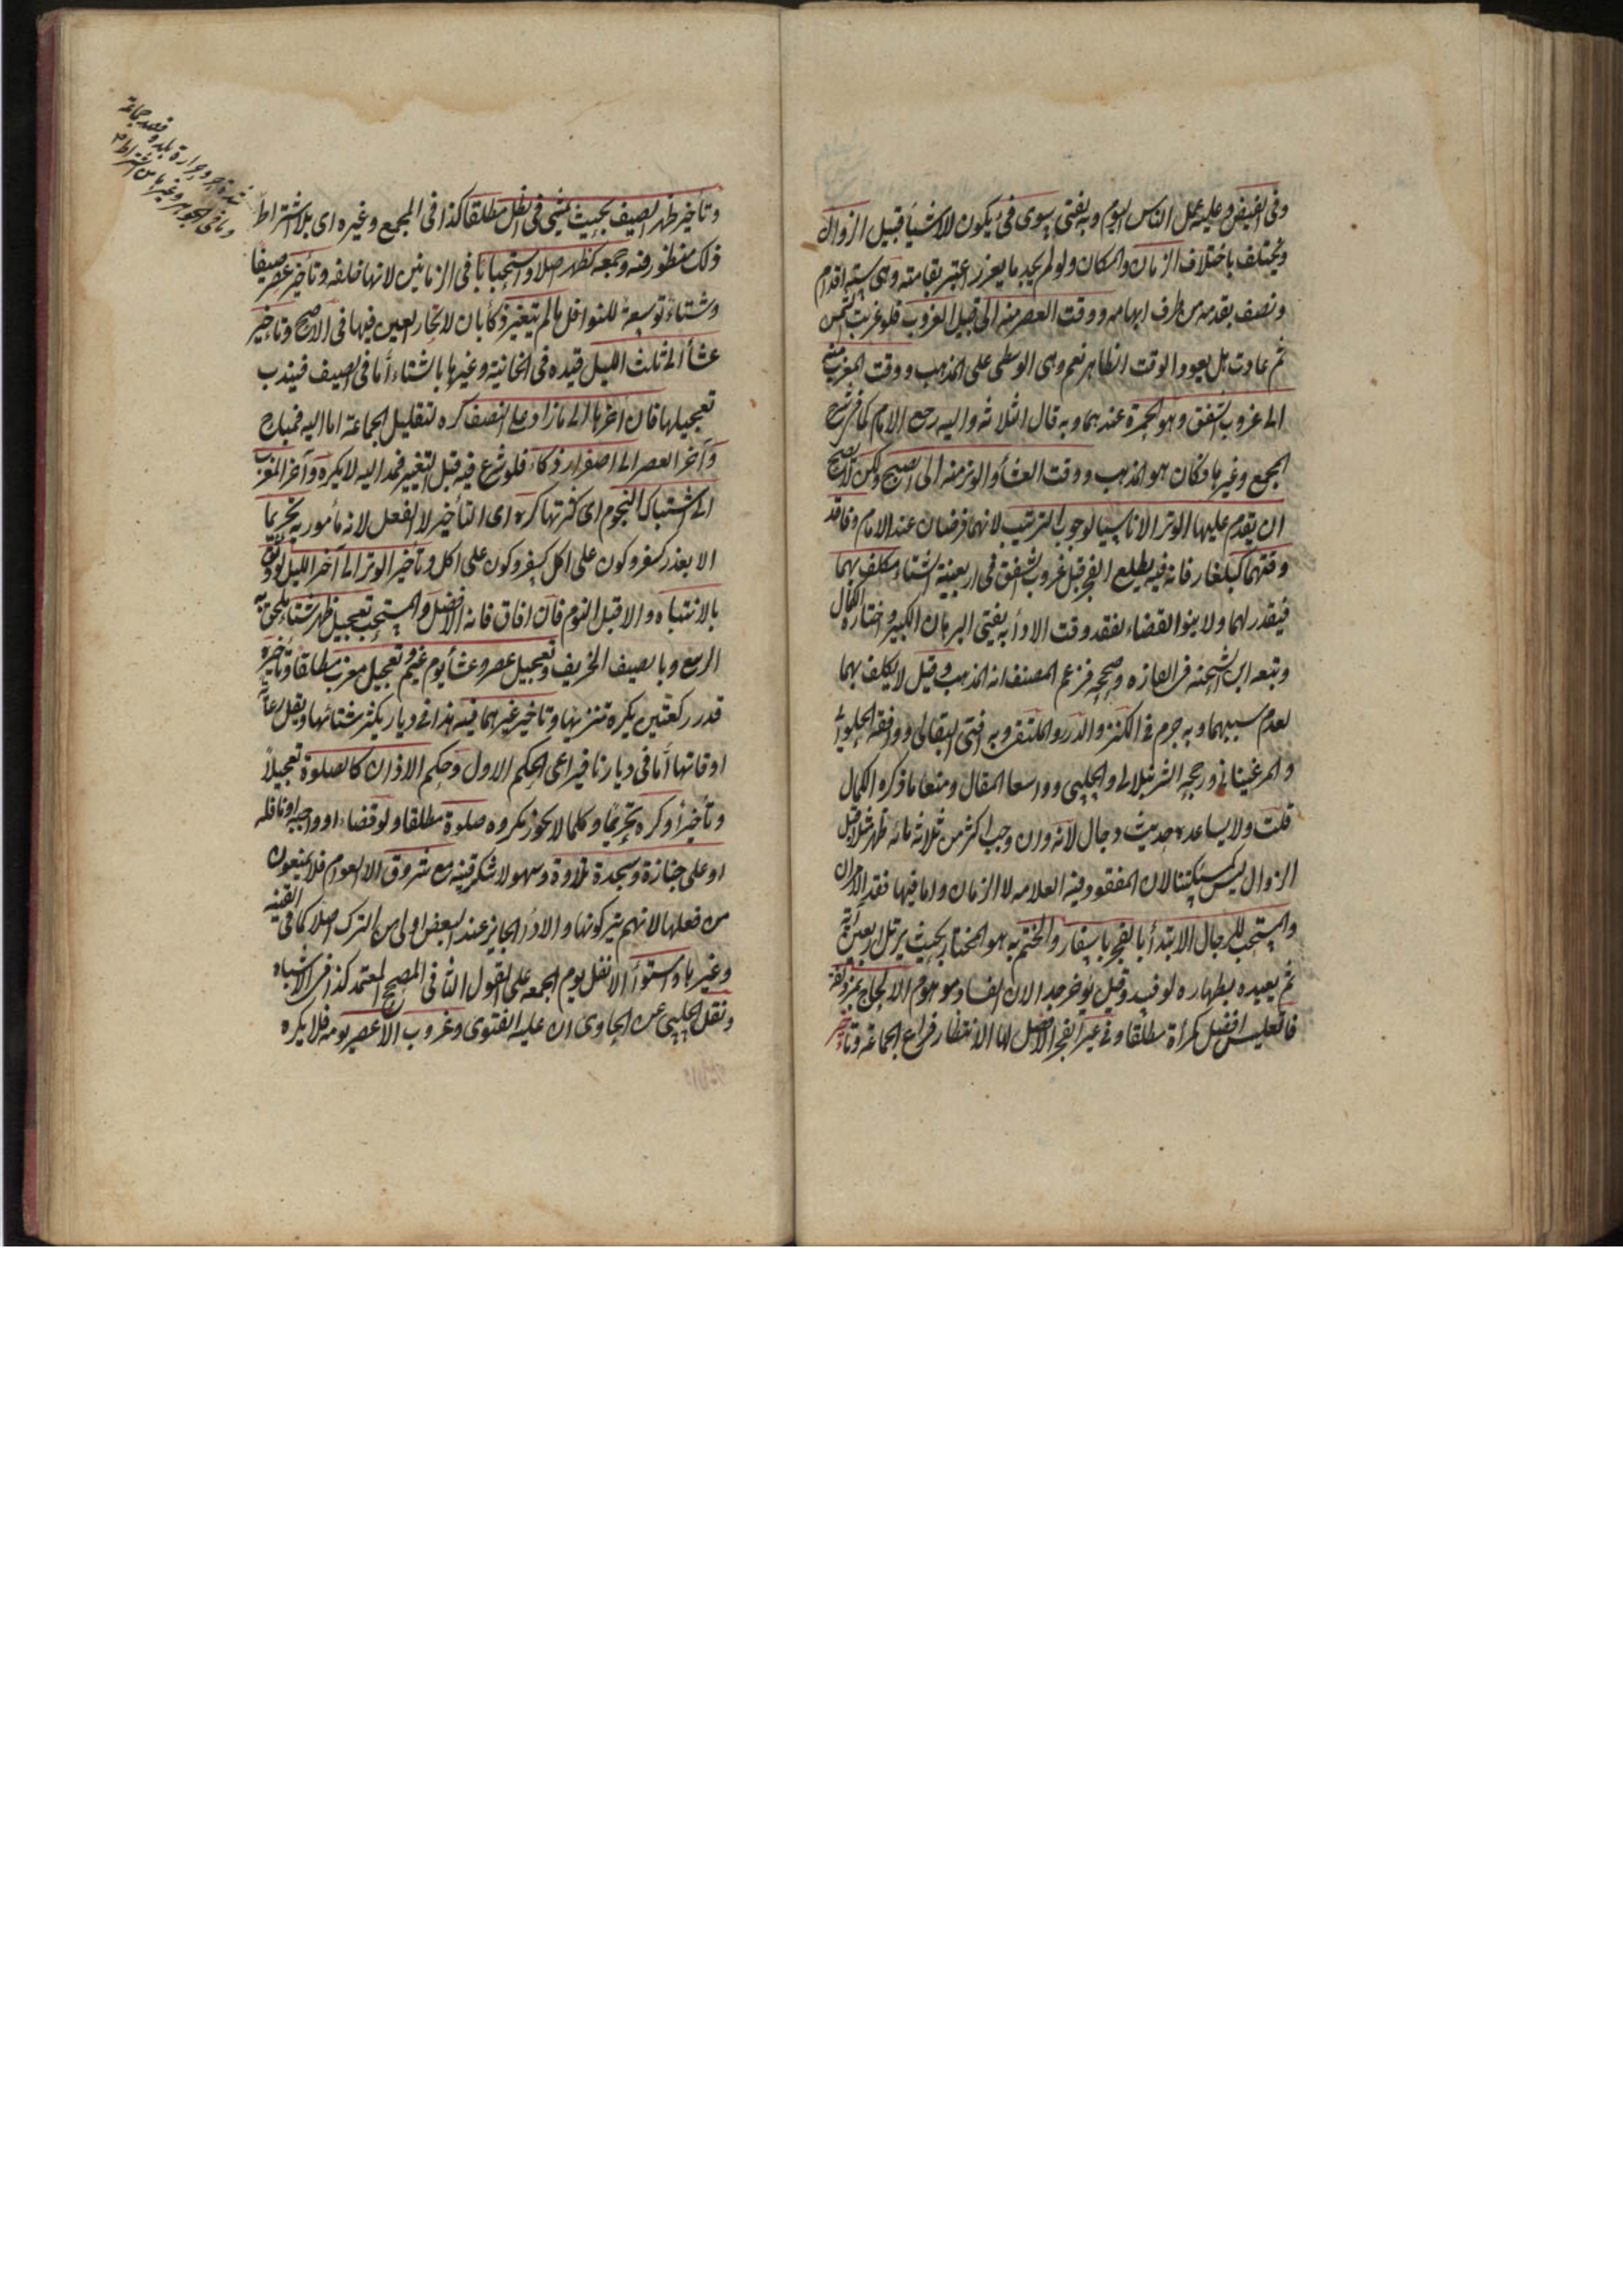 وفى الفيض وعليه عمل الناس اليوم وبه يفتى سوى فىء يكون للاشياء قبيل الزوال
ويختلف باختلاف الزمان والمكان ولو لم يجد ما يغرز اعتبر بقامته وهى ستة اقدام
ونصف بقدمه من طرف ابهامه ووقت العصر منه الى قبيل الغروب فلو غربت الشمس
ثم عادت هل يعود الوقت الظاهر نعم وهى الوسطى على المذهب ووقت المغرب منه
الى غروب الشفق وهو الحمرة عندهما وبه قال الثلاثة واليه رجع الامام كما فى شرح
المجمع وغيرها فكان هو المذهب ووقت العشاء والوتر منه الى الصبح ولكن لا يصح
ان يقدم عليها الوتر الا ناسيا لوجوب الترتيب لانهما فرضان عند الامام وفاقد
وقتهما كبلغار فانه فيه يطلع الفجر قبل غروب الشفق فى اربعينة الشتاء مكلف بهما
فيقدر لهما ولا ينوى القضاء لفقد وقت الاداء به يفتى البرهان الكبير واختاره الكمال
وتبعه ابن الشحنة فى الغازه وصححه فزعم المصنف انه المذهب وقيل لا يكلف بهما
لعدم سببهما وبه جزم فى الكنز والدرر والملتقى وبه افتى البقالى ووافقه الحلوانى
والمرغينانى ورجحه الشرنبلالى والحلبى واوسعا المقال ومنعا ما ذكره الكمال
قلت ولا يساعده حديث دجال لانه وان وجب اكثر من ثلاثمائة ظهر مثلا قبل
الزوال ليس كمسئلتنا لان المفقود فيه العلامه لا الزمان واما فيها فقد الامران
والمستحب للرجال الابتداء بالفجر باسفار والختم به هو المختار بحيث يرتل اربعين آية
ثم يعيده بطهاره لو فسد وقيل يؤخر جدا لان الفساد موهوم الا لحاج بمزدلفة
فالتغليس افضل كمرأة مطلقا وفى غير الفجر الافضل لها الانتظار فراغ الجماعة وتأخير
وتأخير ظهر الصيف بحيث يمشى فى الظل مطلقا كذا فى المجمع وغيره اى بلا اشتراط
شدة حر وحرارة بلد وقصد جماعة
وما فى الجوهرة وغيرها من اشتراط
ذلك منظور فيه وجمعه كظهر اصلا واستحبابا فى الزمانين لانها خلفه وتأخير عصر صيفا
وشتاء توسعة للنوافل ما لم يتغير ذكاء بان لا تحار العين فيها فى الاصح وتأخير
عشاء الى ثلث الليل قيده فى الخانية وغيرها بالشتاء أما فى الصيف فيندب
تعجيلها فان اخرها الى ما زاد على النصف كره لتقليل الجماعة اما اليه فمباح
وآخر العصر الى اصفرار ذكاء فلو شرع فيه قبل التغير فمد اليه لا يكره وآخر المغرب
الى اشتباك النجوم اى كثرتها كره اى التأخير لا الفعل لانه مأمور به تحريما
الا بعذر كسفر وكون على اكل كسفر وكون على اكل وتأخير الوتر الى آخر الليل لواثق
بالانتباه والا قبل النوم فان افاق فانه الافضل والمستحب تعجيل ظهر شتاء يلحق به
الربيع وبالصيف الخريف وتعجيل عصر وعشاء يوم غيم وتعجيل مغرب مطلقا وتأخيره
قدر ركعتين يكره تنزيها وتأخير غيرهما فيه هذا فى ديار يكثر شتائها ويقل رعاية
اوقاتها أما فى ديارنا فيراعى الحكم الاول وحكم الاذان كالصلوة تعجيلا
وتأخيرا وكره تحريما وكلما لا يجوز مكروه صلوة مطلقا ولو قضاء او واجبه او نافله
او على جنازة وسجدة تلاوة وسهو لا شكر قينه مع شروق الا العوام فلا يمنعون
من فعلها لانهم يتركونها والاداء الجايز عند البعض اولى من الترك اصلا كما فى القنيه
وغيرها واستواء الا نفل يوم الجمعه على القول الثانى المصحح المعتمد كذا فى الاشباه
ونقل الحلبى عن الحاوى ان عليه الفتوى وغروب الا عصر يومه فلا يكره